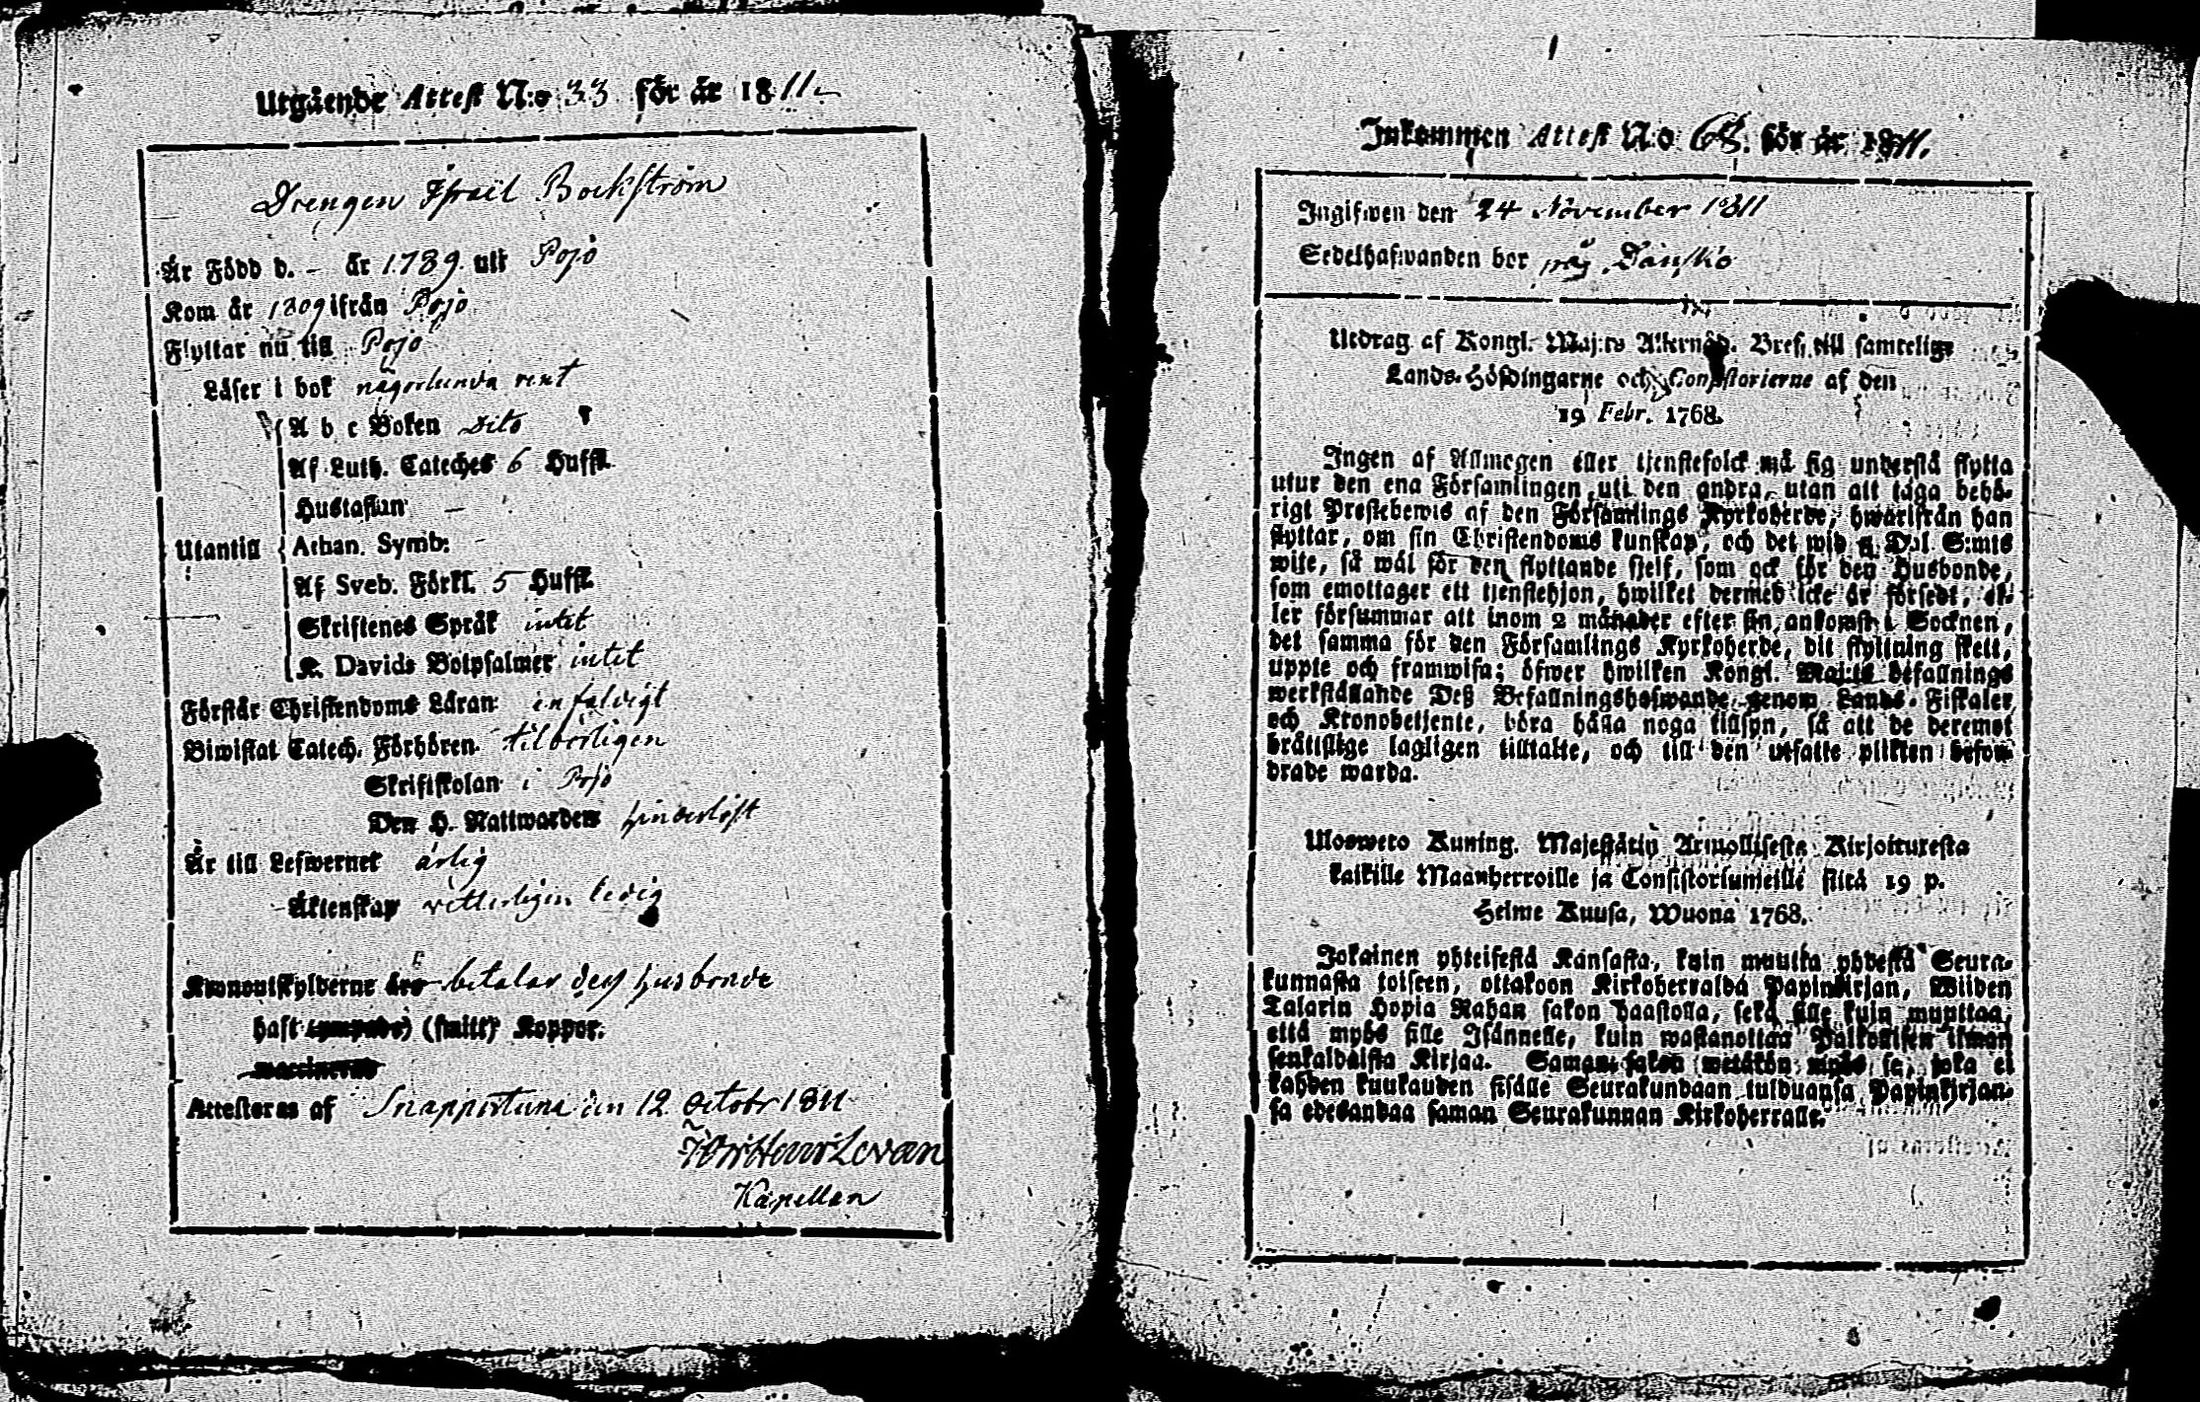 Utgående Attest N:o 33 för år 1811.
Drengen Israel Bockström
Är Född d. - år 1789. uti Pojo
Kom år 1809 ifrån Pojo
Flyttar nu till Pojo
Läser i bok någorlunda rent
A b c Boken dito
Af Luth. Cateches 6 Hufst.
Hustaflan -
Utantill Athan. Symb:
Af Sveb. Förkl. 5 Hufst.
Skriftenes Språk intet
K. Davids Botpsalmer intet
Förstår Christendoms Läran enfaldigt
Biwistat Catech. Förhören tilbörligen
Skriftskolan i Pojo
Den H. Nattwarden hinderlöst
Är till Lefwernet ärlig
Äktenskap vetterligen ledig
Kronoutskylderne äro betalar dess husbonde
haft (smitt) Koppor.
Attesteras af Snappertuna den 12 Octobr 1811
Kapellan
Inkommen Attest N:o 68. för år 1811.
Ingifwen den 24 November 1811
Sedelhafwanden bor på Danskö
Utdrag af Kongl. Maj:ts Allernåd. Bref, till samtelige
Lands-Höfdingarne och Consistorierne af den
19 Febr. 1768.
Ingen af Allmogen eller tjenstefolck må sig understå flytta
utur den ena Församlingen uti den andra, utan att taga behö-
rigt Prestebewis af den Församlings Kyrkoherde, hwarifrån han
flyttar, om sin Christendoms kunskap, och det wid 5 Dal. S:mts
wite, så wäl för den flyttande sjelf, som ock för den Husbonde,
som emottager ett tjenstehjon, hwilket dermed icke är försedt, el-
ler försummar att inom 2 månader efter sin ankomst i Socknen,
det samma för den Församlings Kyrkoherde, dit flyttning skett,
uppte och framwisa; öfwer hwilken Kongl. Maj:ts befallnings
werkställande Deß Befallningshafwande genom Lands-Fiskaler
och Kronobetjente, böra hålla noga tillsyn, så att de deremot
bråttslige lagligen tilltalte, och till den utsatte plikten befor-
drade warda.
Ulosweto Kuning. Majestätin Armollisesta Kirjoituresta
kaikille Maanherroille ja Consistoriumeille siitä 19 p.
Helme Kuusa, Wuona 1768.
Jokainen yhteisestä Kansasta, kuin muutta yhdestä Seura-
kunnasta toiseen, ottakoon Kirkoherralda Papinkirjan, Wiiden
Talarin Hopia Rahan sakon haastolla, sekä sille kuin muuttaa,
että myös sille Isännelle, kuin wastanottaa Palkollisen ilman
senkaldaista Kirjaa. Saman sakon wetäkön myös se, joka ei
kahden kuukauden sisälle Seurakundaan tulduansa Papinkirjan-
sa edesandaa saman Seurakunnan Kirkoherralle.